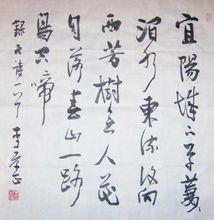 宜陽城下草萋
澗水東流復向
西芳樹無人花
自落春山一路
鳥空啼
錄 詩一首 李